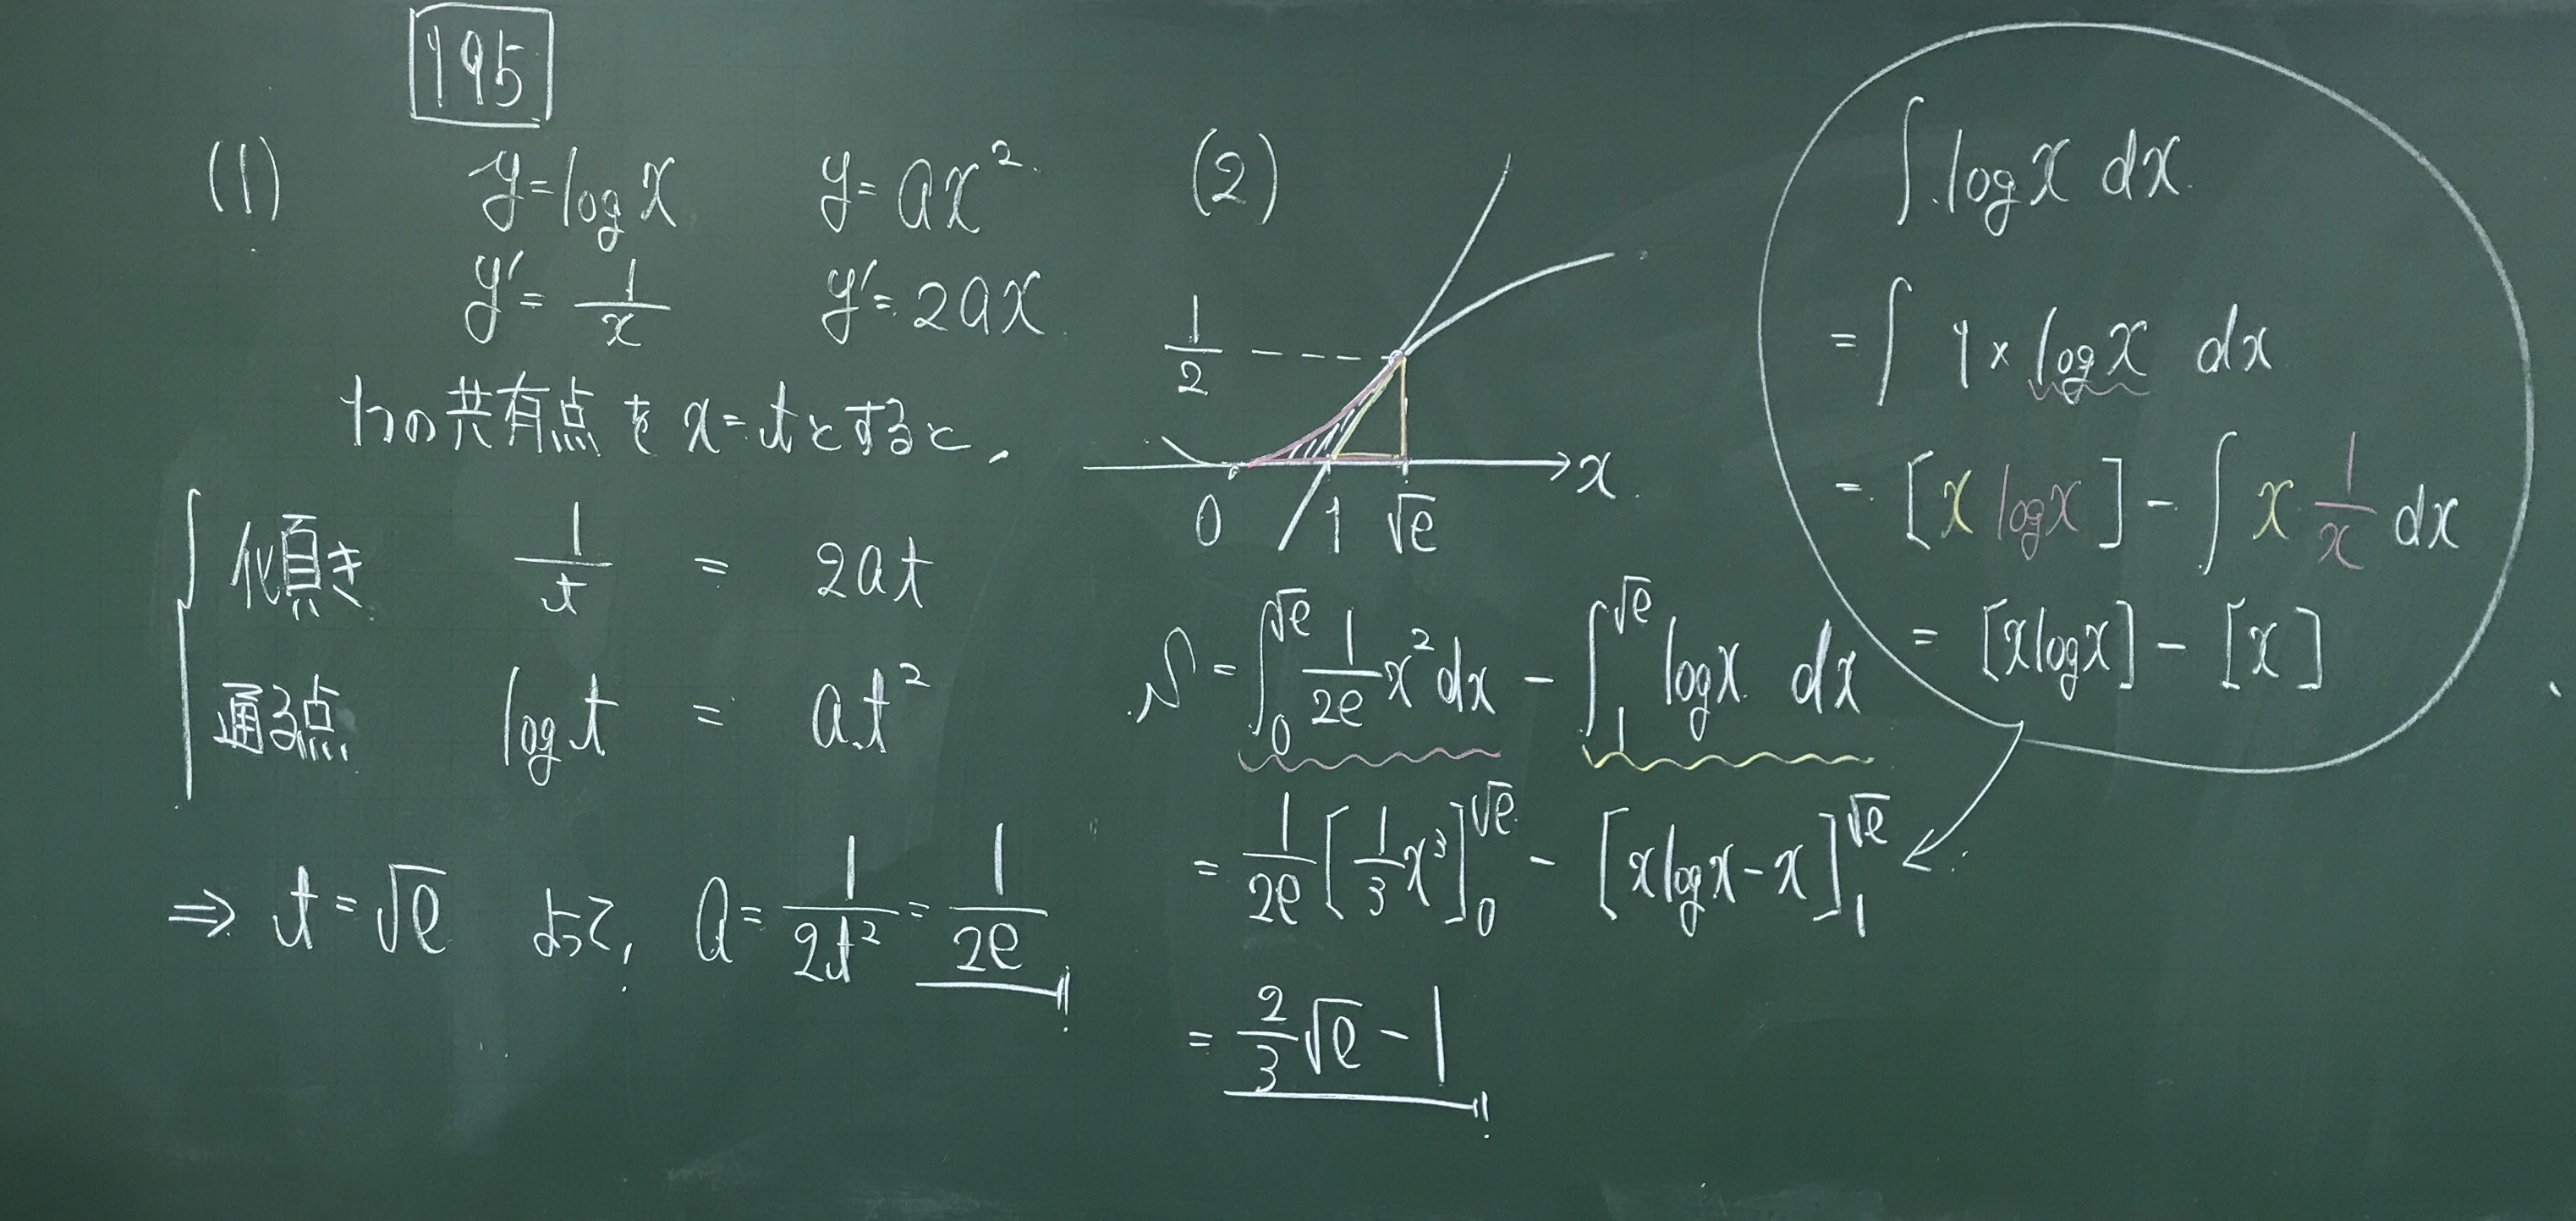 195
(1)
y=logx y=ax²
y'=1/x y'=2ax
の共有点をx=tとすると,
傾き 1/t = 2at
通る点 logt = at²
⇒ t=√e よって, a=1/2t²=1/2e
(2)
1/2
0 1 √e x
S=∫₀^√e 1/2e x²dx - ∫₁^√e logx dx
=1/2e[1/3x³]₀^√e - [xlogx-x]₁^√e
=2/3√e-1
∫logx dx
=∫1×logx dx
=[xlogx]-∫x 1/x dx
=[xlogx]-[x]